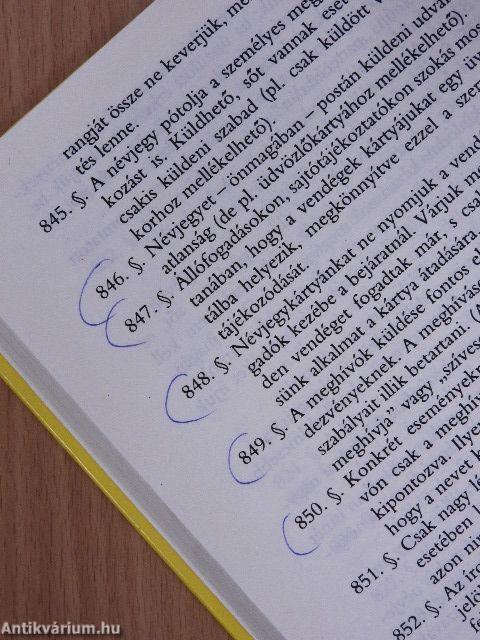 rangját össze ne keverjük, me
tés lenne.
845. §. A névjegy pótolja a személyes meg
kozást is. Küldhető, sőt vannak eset
csakis küldeni szabad (pl. csak küldött v
korhoz mellékelhető).
846. §. Névjegyet – önmagában – postán küldeni udva
atlanság (de pl. üdvözlőkártyához mellékelhető).
847. §. Állófogadásokon, sajtótájékoztatókon szokás mos
tanában, hogy a vendégek kártyájukat egy üv
tálba helyezik, megkönnyítve ezzel a szem
tájékozódását.
848. §. Névjegykártyánkat ne nyomjuk a vend
gadók kezébe a bejáratnál. Várjuk m
den vendéget fogadtak már, s csa
sünk alkalmat a kártya átadására
849. §. A meghívók küldése fontos el
dezvényeknek. A meghívás
szabályait illik betartani. (
meghívja” vagy „szíves
850. §. Konkrét eseményekr
vón csak a meghí
kipontozva. Ilye
hogy a nevet k
851. §. Csak nagy lé
esetében
azon nin
852. §. Az íro
jelö
Antikvárium.hu